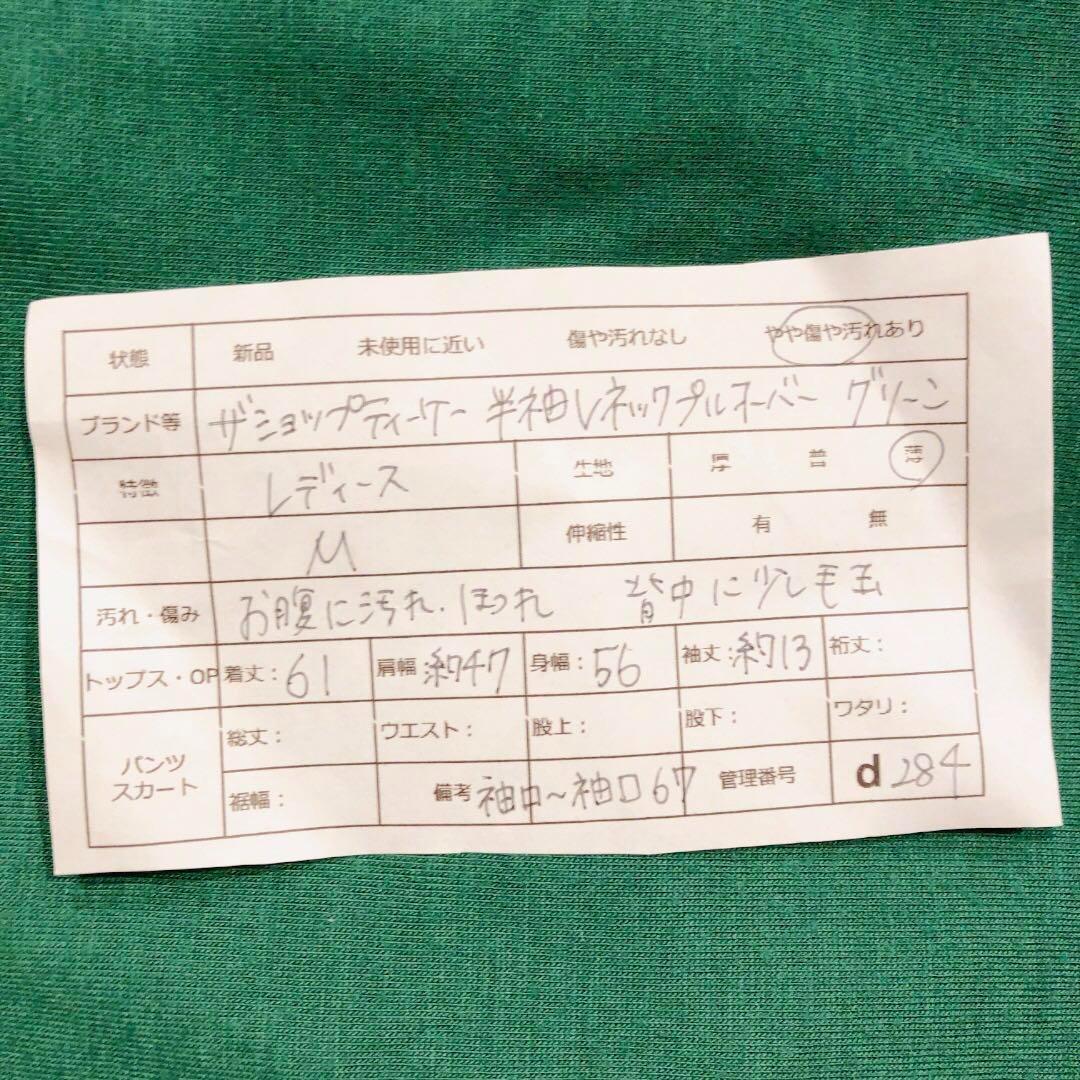 状態 新品 未使用に近い 傷や汚れなし やや傷や汚れあり
ブランド等 ザショップティーケー 半袖Vネックプルオーバー グリーン
特徴 レディース 生地 厚 普 薄
M 伸縮性 有 無
汚れ・傷み お腹に汚れ、ほつれ 背中に少し毛玉
トップス・OP 着丈:61 肩幅 約47 身幅:56 袖丈:約13 裄丈:
パンツ スカート 総丈: ウエスト: 股上: 股下: ワタリ:
裾幅: 備考 袖口~袖口67 管理番号 d284